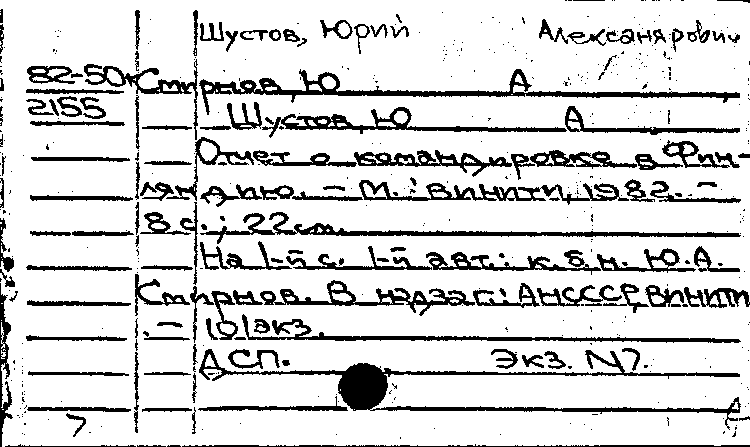 Шустов, Юрий Александрович
82-50к Смирнов, Ю А
2155 Шустов, Ю А
Отчет о командировке в Фин-
ляндию. - М.: ВИНИТИ, 1982. -
8 с.; 22 см.
На 1-й с. 1-й авт.: к.б.н. Ю.А.
Смирнов. В надзаг.: АНСССР, ВИНИТИ
. - 101экз.
ДСП. Экз. N7.